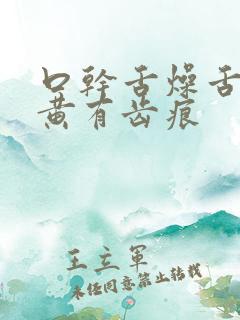 口幹舌燥舌
黄有齿痕
王立軍
未经同意禁止转载